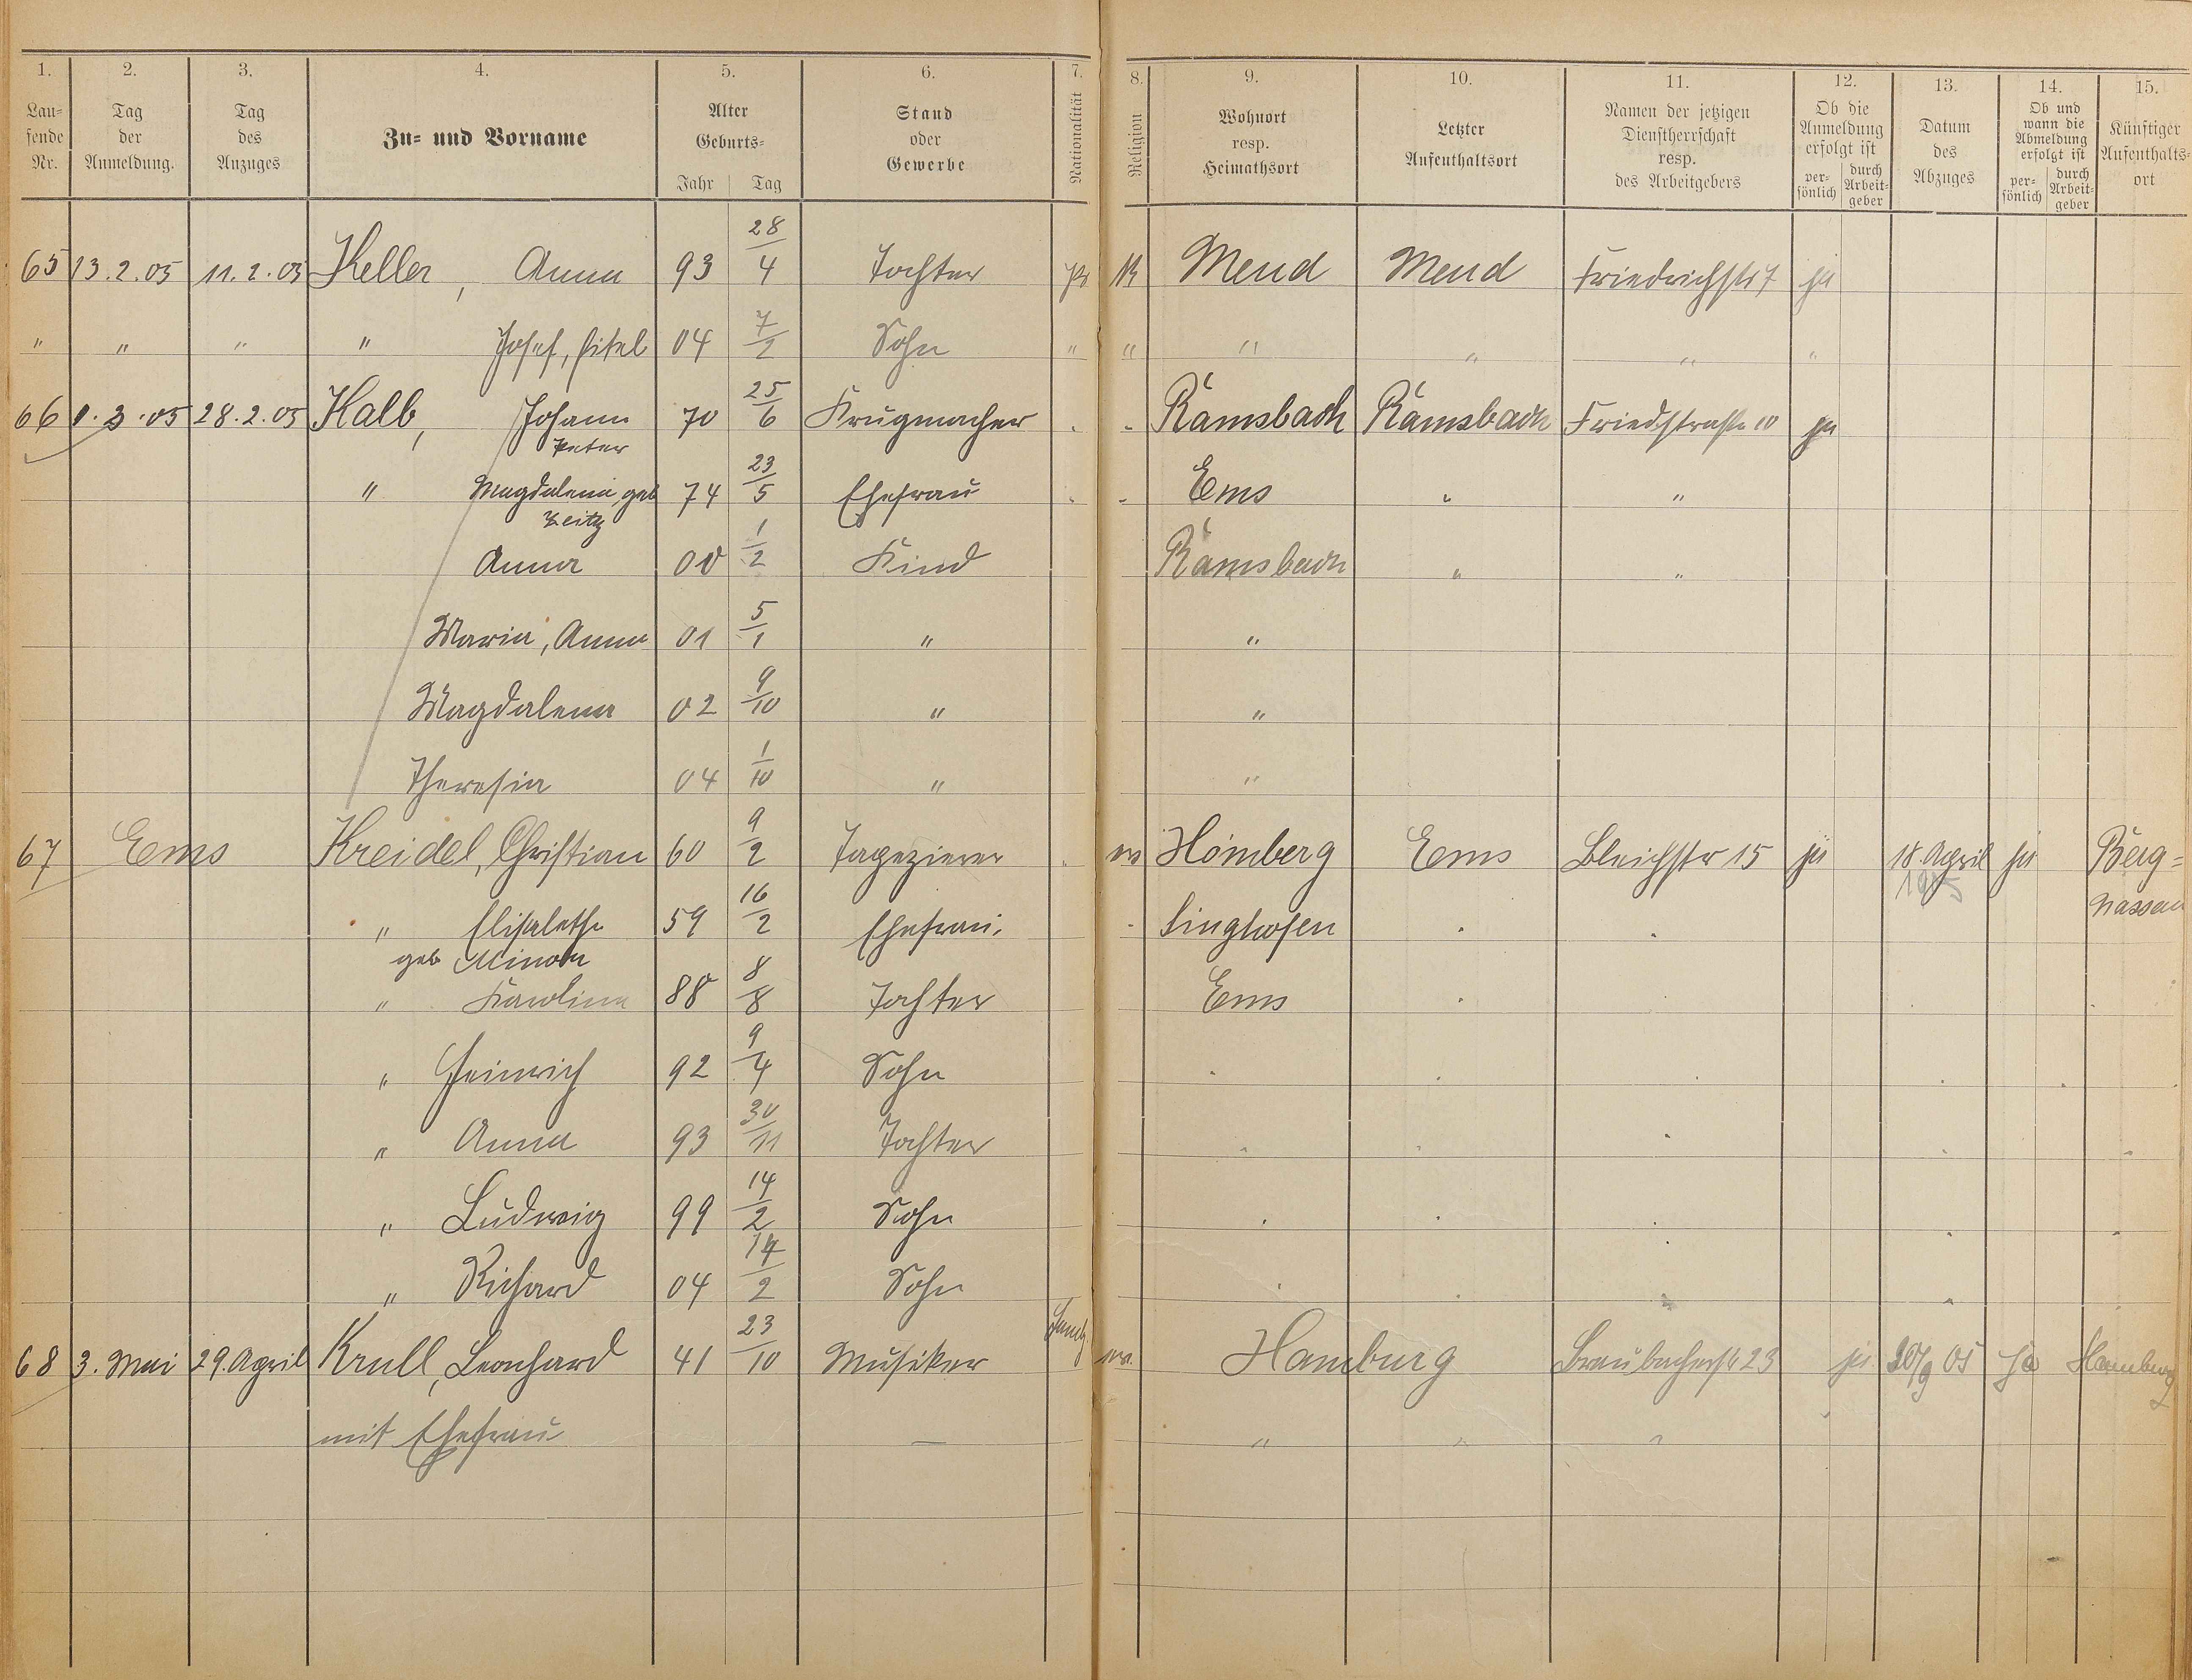 1. 2. 3. 4. 5. 6. 7. 8. 9. 10. 11. 12. 13. 14. 15.
Lau= fende Nr. Tag der Anmeldung. Tag des Anzuges Zu= und Vorname Alter Geburts= Jahr Tag Stand oder Gewerbe Nationalität Religion Wohnort resp. Heimathsort Letzter Aufenthaltsort Namen der jetzigen Dienstherrschaft resp. des Arbeitgebers Ob die Anmeldung erfolgt ist per= sönlich durch Arbeit= geber Datum des Abzuges Ob und wann die Abmeldung erfolgt ist per= sönlich durch Arbeit= geber Künftiger Aufenthalts= ort
65 13.2.05 11.2.05 Keller, Anna 93 28/4 Tochter Pr K Mend Mend Friedrichstr 7 ja
" " " " Josef, 04 7/2 Sohn " " " " " "
66 1.3.05 28.2.05 Kalb, Johann 70 25/6 Krugmacher Ramsbach Ramsbach Friedstraße 10 ja
Peter
" Magdalena, geb 74 23/5 Ehefrau Ems " "
Zeitz
Anna 00 1/2 Kind Ramsbach " "
Maria, Anna 01 5/1 " "
Magdalena 02 9/10 " "
Theresia 04 1/10 " "
67 Ems Kreidel, Christian 60 9/2 Tapezierer ev Homberg Ems Bleichstr 15 ja 18. April ja Berg=
1905 nassau
" Elisabethe 59 16/2 Ehefrau. Singhofen
geb Minor
" Karolina 88 8/8 Tochter Ems
" Heinrich 92 9/4 Sohn
" Anna 93 30/11 Tochter
" Ludwig 99 14/2 Sohn
" Richard 04 14/2 Sohn
68 3. Mai 29. April Krull, Leonhard 41 23/10 Musiker Hamb. ev. Hamburg Braubacherstr 23 ja 30/9 05 ja Hamburg
mit Ehefrau — " " "